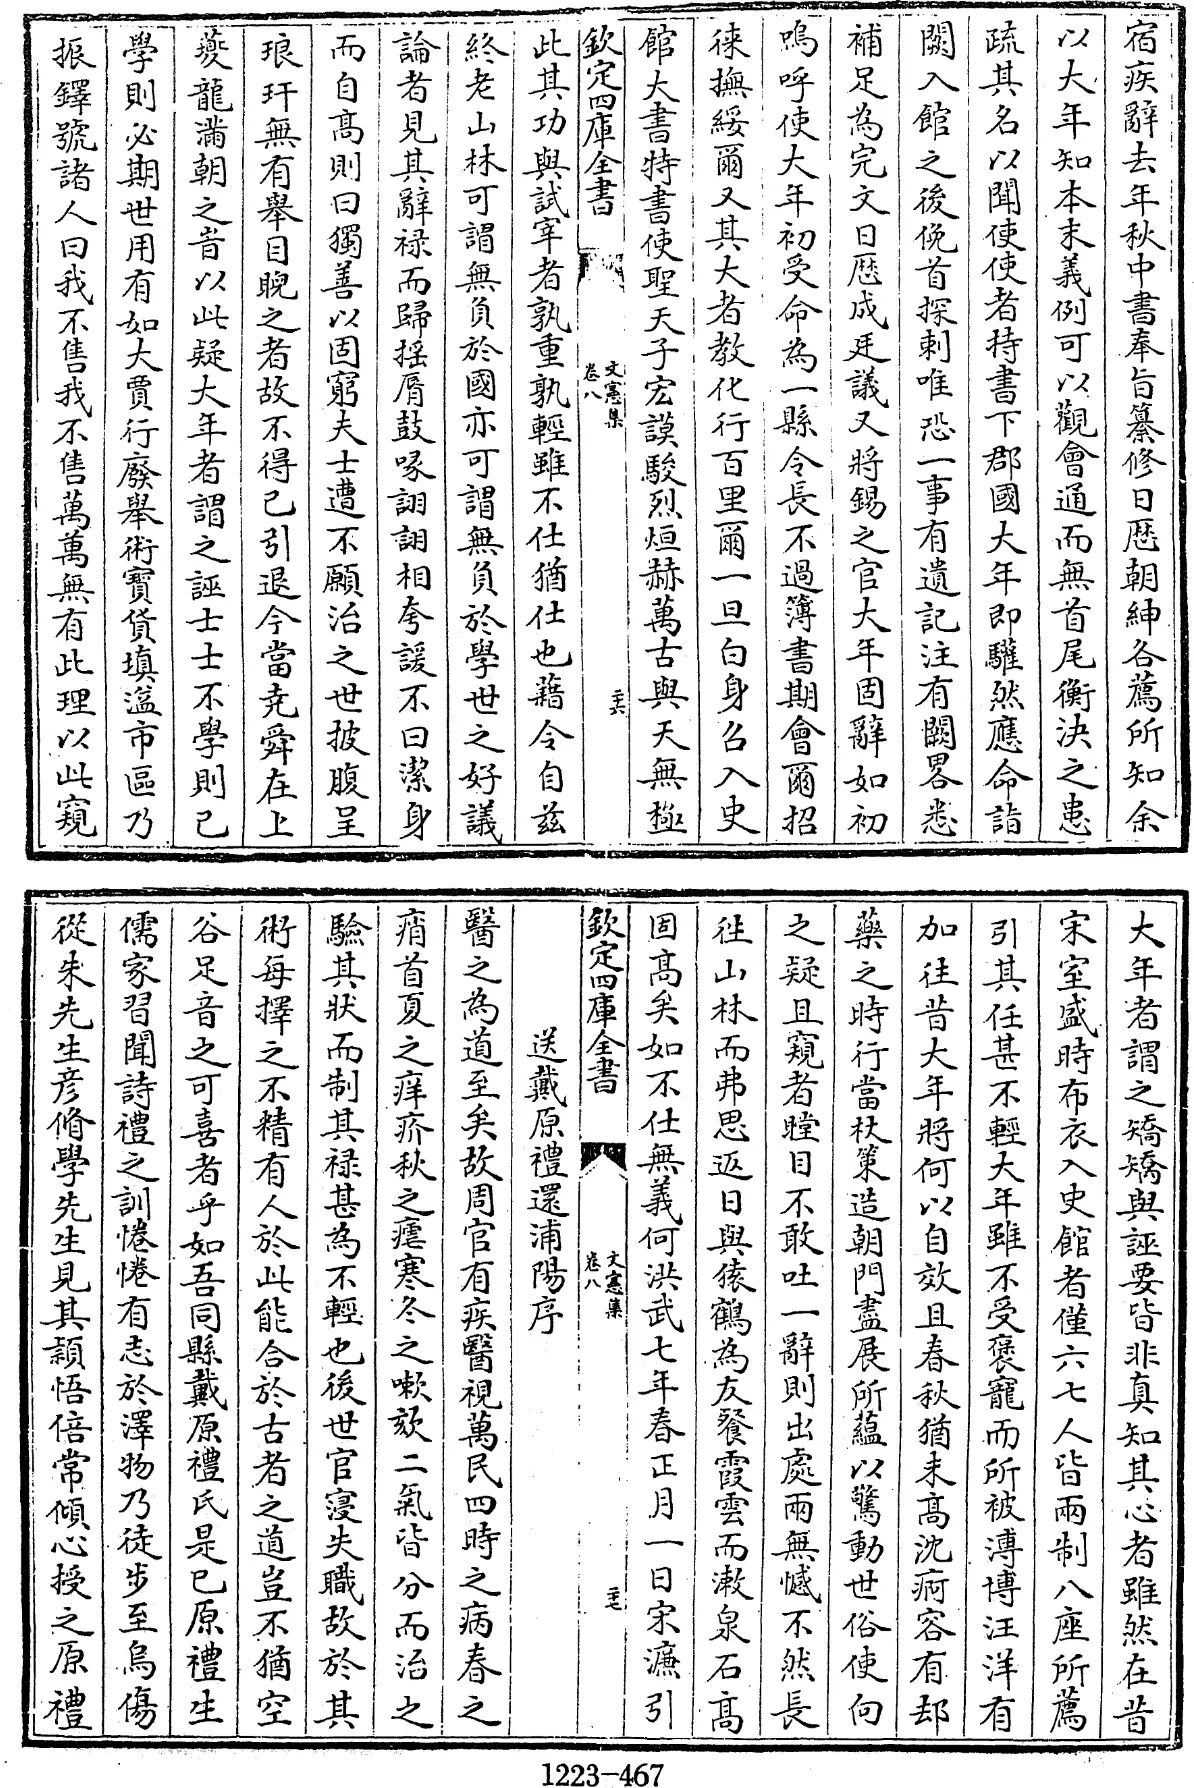 宿疾辭去年秋中書奉旨纂修日歴朝紳各薦所知余
以大年知本末義例可以觀會通而無首尾衡決之患
疏其名以聞使使者持書下郡國大年即驩然應命詣
闕入館之後俛首探剌唯恐一事有遺記注有闕畧悉
補足為完文日歴成廷議又將錫之官大年固辭如初
嗚呼使大年初受命為一縣令長不過簿書期會爾招
徠撫綏爾又其大者教化行百里爾一旦白身召入史
館大書特書使聖天子宏謨駿烈烜赫萬古與天無極
欽定四庫全書
文憲集
卷八
二六
此其功與試宰者孰重孰輕雖不仕猶仕也藉令自兹
終老山林可謂無負於國亦可謂無負於學世之好議
論者見其辭禄而歸揺脣鼓喙詡詡相夸諼不曰潔身
而自髙則曰獨善以固窮夫士遭不願治之世披腹呈
琅玕無有舉目睨之者故不得已引退今當堯舜在上
夔龍滿朝之旹以此疑大年者謂之誣士士不學則已
學則必期世用有如大賈行廢舉術寳貨填溢市區乃
振鐸號諸人曰我不售我不售萬萬無有此理以此窺
大年者謂之矯矯與誣要皆非真知其心者雖然在昔
宋室盛時布衣入史館者僅六七人皆兩制八座所薦
引其任甚不輕大年雖不受褒寵而所被溥博汪洋有
加往昔大年將何以自效且春秋猶未髙沈痾容有却
藥之時行當杖策造朝門盡展所藴以驚動世俗使向
之疑且窺者瞠目不敢吐一辭則出處兩無憾不然長
徃山林而弗思返日與猿鶴為友餐霞雲而漱泉石髙
固髙矣如不仕無義何洪武七年春正月一日宋濂引
欽定四庫全書
文憲集
卷八
二七
送戴原禮還浦陽序
醫之為道至矣故周官有疾醫視萬民四時之病春之
痟首夏之痒疥秋之瘧寒冬之嗽欬二氣皆分而治之
驗其狀而制其禄甚為不輕也後世官寖失職故於其
術每擇之不精有人於此能合於古者之道豈不猶空
谷足音之可喜者乎如吾同縣戴原禮氏是已原禮生
儒家習聞詩禮之訓惓惓有志於澤物乃徒步至烏傷
從朱先生彦脩學先生見其穎悟倍常傾心授之原禮
1223-467